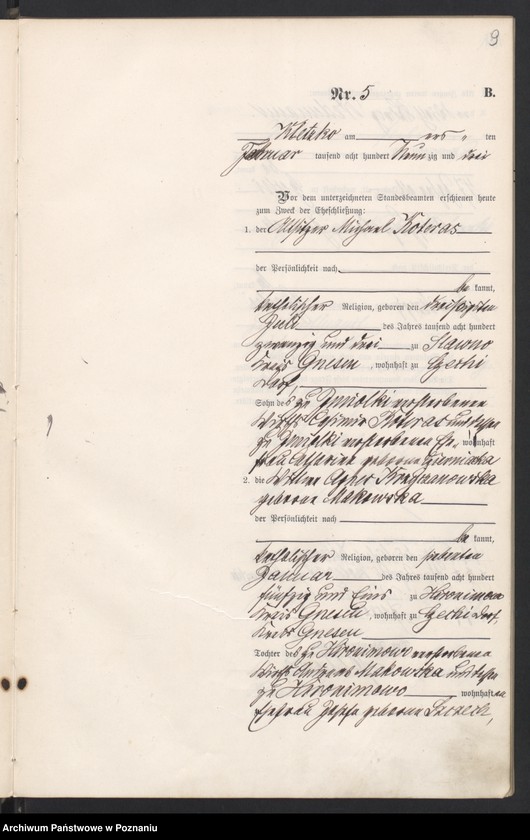 9
Nr. 5 B.
Kletzko am ers ten
Februar tausend acht hundert neun zig und drei
Vor dem unterzeichneten Standesbeamten erschienen heute
zum Zweck der Eheschließung:
1. der Altsitzer Michael Koteras
der Persönlichkeit nach
be kannt,
katholischer Religion, geboren den dreißigsten
Juli des Jahres tausend acht hundert
zwanzig und drei zu Slawno
Kreis Gnesen, wohnhaft zu Czechi
Dorf,
Sohn des zu verstorbenen
Wirths Casimir Koteras und dessen
zu verstorbenen Ehe wohnhaft
frau Catharina geborene
2. die Wittwe Agnes
geborene Makowska
der Persönlichkeit nach
be kannt,
katholischer Religion, geboren den
Januar des Jahres tausend acht hundert
fünfzig und Eins zu Hironimowo
Kreis Gnesen, wohnhaft zu Czechi Dorf
Kreis Gnesen
Tochter des zu Hironimowo verstorbenen
Wirths Makowska und dessen
zu Hironimowo wohnhaften
Ehefrau Josefa geborene
Archiwum Państwowe w Poznaniu